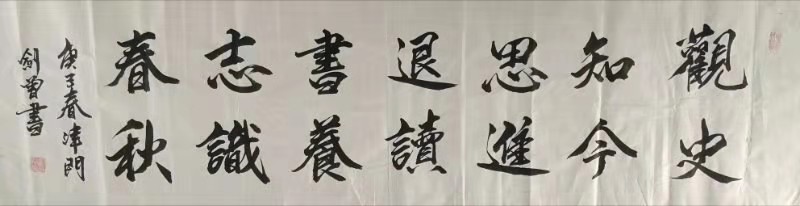 觀史
知今
思進
退讀
書養
志識
春秋
庚子春津門
劍曾書